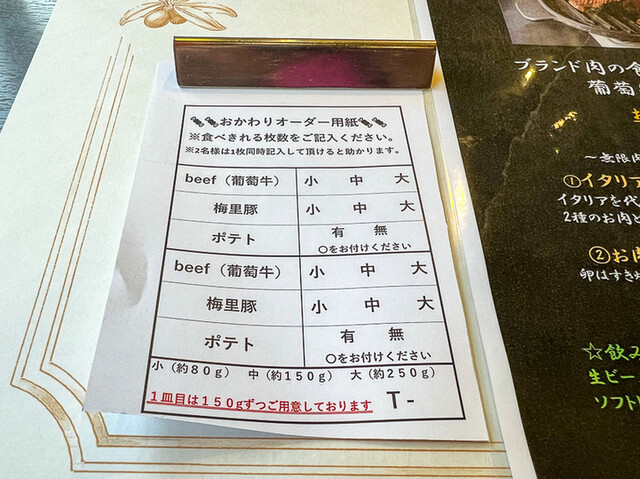 おかわりオーダー用紙
※食べきれる枚数をご記入ください。
※2名様は1枚同時記入して頂けると助かります。
beef（葡萄牛） 小 中 大
梅里豚 小 中 大
ポテト 有 無
〇をお付けください
beef（葡萄牛） 小 中 大
梅里豚 小 中 大
ポテト 有 無
〇をお付けください
小（約80g） 中（約150g） 大（約250g）
1皿目は150gずつご用意しております
T-
ブランド肉の
葡萄
～無限
①イタリア
イタリアを代
2種のお肉と
②お肉
卵はすき
☆飲み
生ビー
ソフト